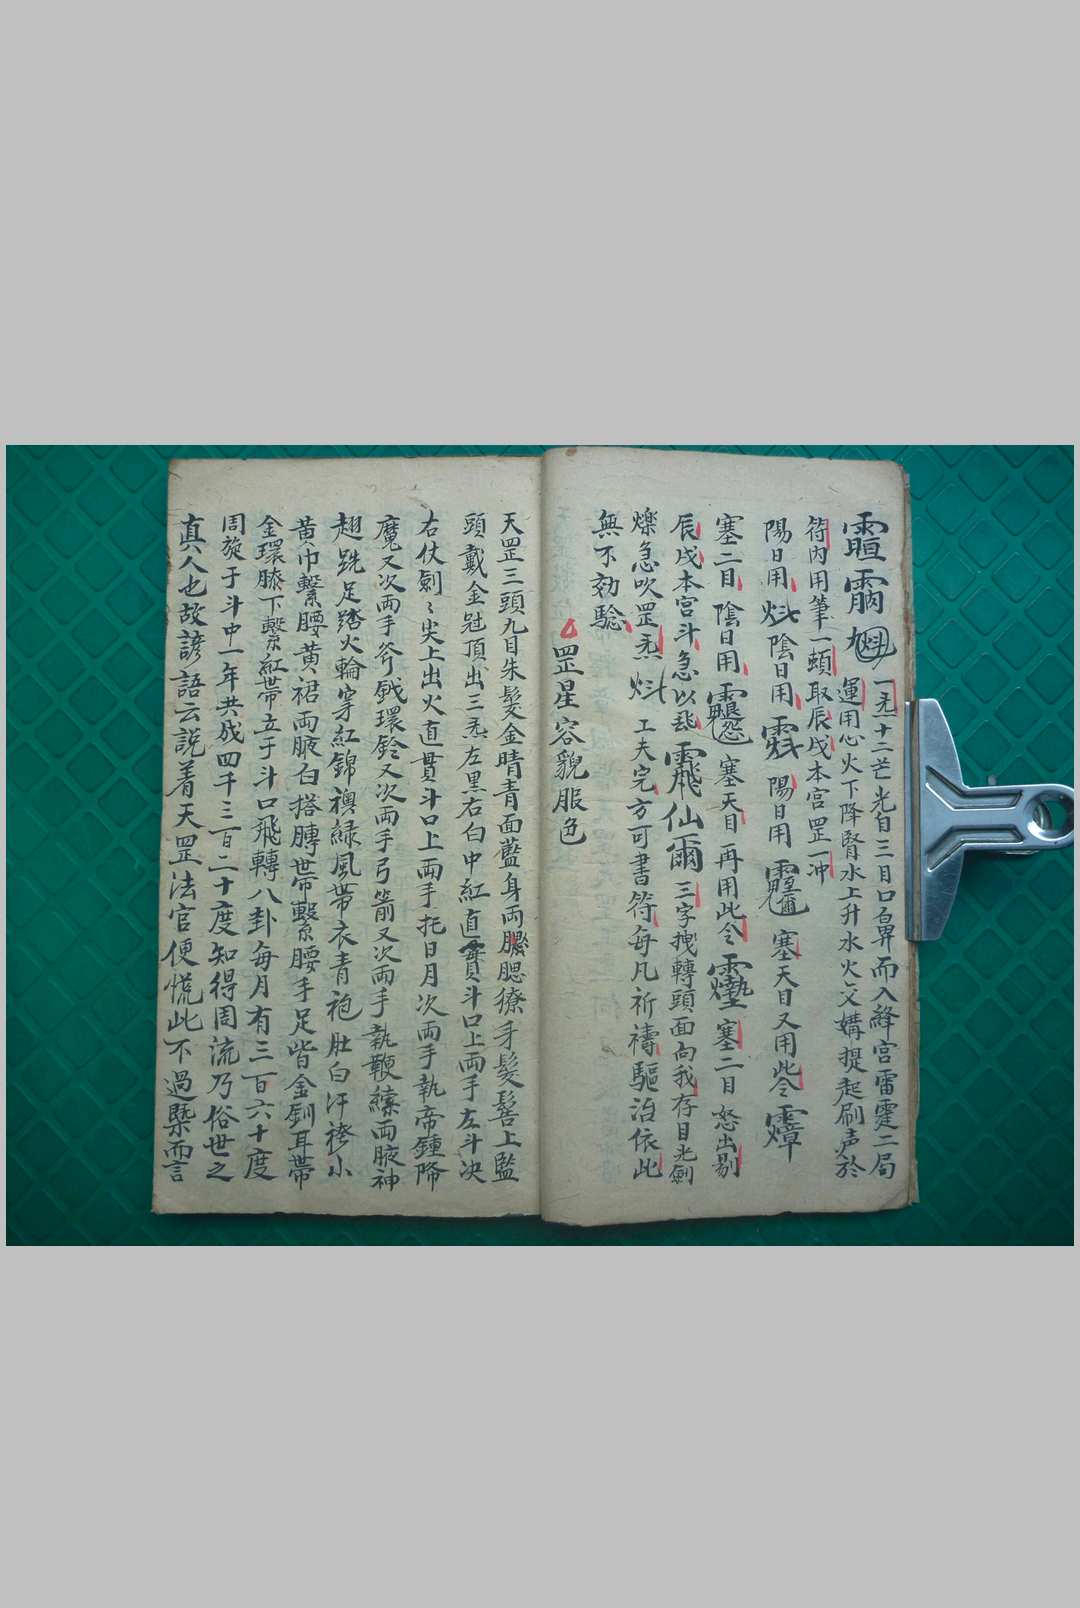 一炁十二芒光自三目口鼻而入絳宮雷霆二局
運用心火下降腎水上升水火交媾提起刷声於
符内用筆一蘸取辰戌本宮罡一冲
陽日用 陰日用 陽日用 塞天目又用此令
塞二目陰日用 塞天目再用此令 塞二目怒出剔
辰戌本宮斗急以 仙爾三字拽轉頭面向我存目光劍
爍急吹罡炁 工夫完方可書符每凡祈禱驅治依此
無不効驗
罡星容貌服色
天罡三頭九目朱髮金睛青面藍身両腮獠牙髮髻上監
頭戴金冠頂出三炁左黑右白中紅直貫斗口上両手左斗决
右仗劍〻尖上出火直貫斗口上両手托日月次両手執帝鍾降
魔又次両手斧鉞環鈴又次両手弓箭又次両手執鞭縤両腋神
翅跣足踏火輪穿紅錦襖緑風帯衣青袍肚白汗袴小
黄巾繫腰黄裙両腋白搭膊帯繫腰手足皆金釧耳帯
金環膝下繫紅帯立于斗口飛轉八卦每月有三百六十度
周旋于斗中一年共成四千三百二十度知得周流乃俗世之
真人也故諺語云説着天罡法官便慌此不過槩而言